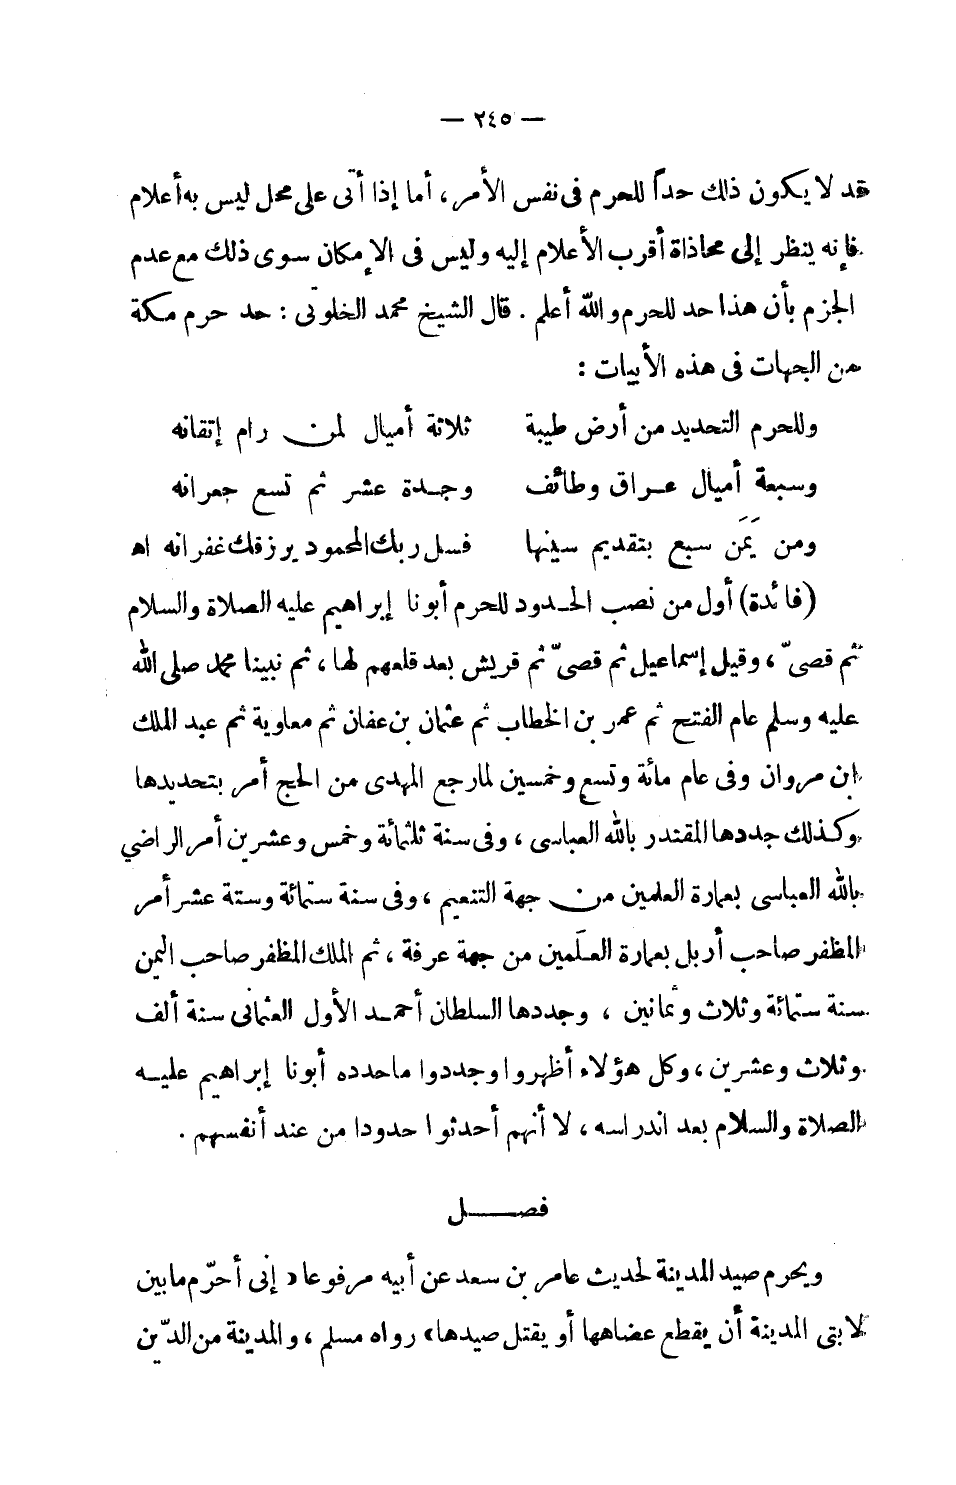 — ٢٤٥ —
قد لا يكون ذلك حداً للحرم فى نفس الأمر ، أما إذا أتى على محل ليس به أعلام
فإنه ينظر إلى محاذاة أقرب الأعلام إليه وليس فى الإمكان سوى ذلك مع عدم
الجزم بأن هذا حد للحرم والله أعلم . قال الشيخ محمد الخلوتى : حد حرم مكة
من الجهات فى هذه الأبيات :
وللحرم التحديد من أرض طيبة ثلاثة أميال لمن رام إتقانه
وسبعة أميال عراق وطائف وجدة عشر ثم تسع جعرانه
ومن يَمَن سبع بتقديم سينها فسل ربك المحمود يرزقك غفرانه اه
(فائدة) أول من نصب الحدود للحرم أبونا إبراهيم عليه الصلاة والسلام
ثم قصىّ ، وقيل إسماعيل ثم قصىّ ثم قريش بعد قلعهم لها ، ثم نبينا محمد صلى الله
عليه وسلم عام الفتح ثم عمر بن الخطاب ثم عثمان بن عفان ثم معاوية ثم عبد الملك
ابن مروان وفى عام مائة وتسع وخمسين لما رجع المهدى من الحج أمر بتحديدها
وكذلك جددها المقتدر بالله العباسى ، وفى سنة ثلثمائة وخمس وعشرين أمر الراضي
بالله العباسى بعمارة العلمين من جهة التنعيم ، وفى سنة ستمائة وستة عشر أمر
المظفر صاحب أربل بعمارة العلَمين من جهة عرفة ، ثم الملك المظفر صاحب اليمن
سنة ستمائة وثلاث وثمانين ، وجددها السلطان أحمد الأول العثمانى سنة ألف
وثلاث وعشرين ، وكل هؤلاء أظهروا وجددوا ما حدده أبونا إبراهيم عليه
الصلاة والسلام بعد اندراسه ، لا أنهم أحدثوا حدودا من عند أنفسهم .
فصل
ويحرم صيد المدينة لحديث عامر بن سعد عن أبيه مرفوعا « إنى أحرّم ما بين
لابتى المدينة أن يقطع عضاهها أو يقتل صيدها» رواه مسلم ، والمدينة من الدّين